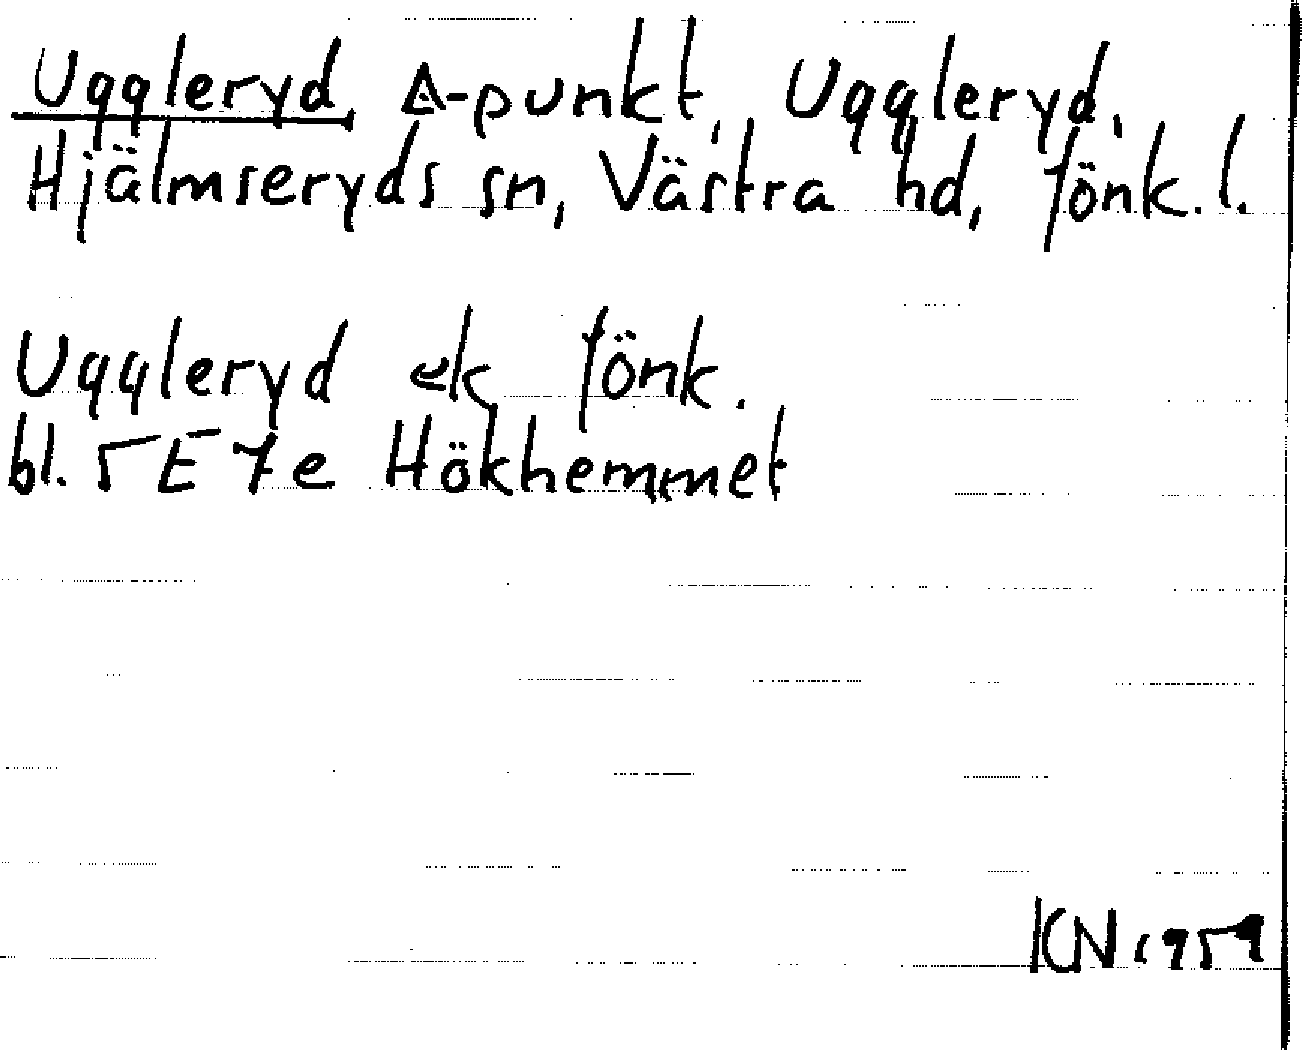 Uggleryd, Δ-punkt, Uggleryd,
Hjälmseryds sn, Västra hd, Jönk. l.
Uggleryd ek Jönk.
bl. 5E7e Hökhemmet
KN 1959